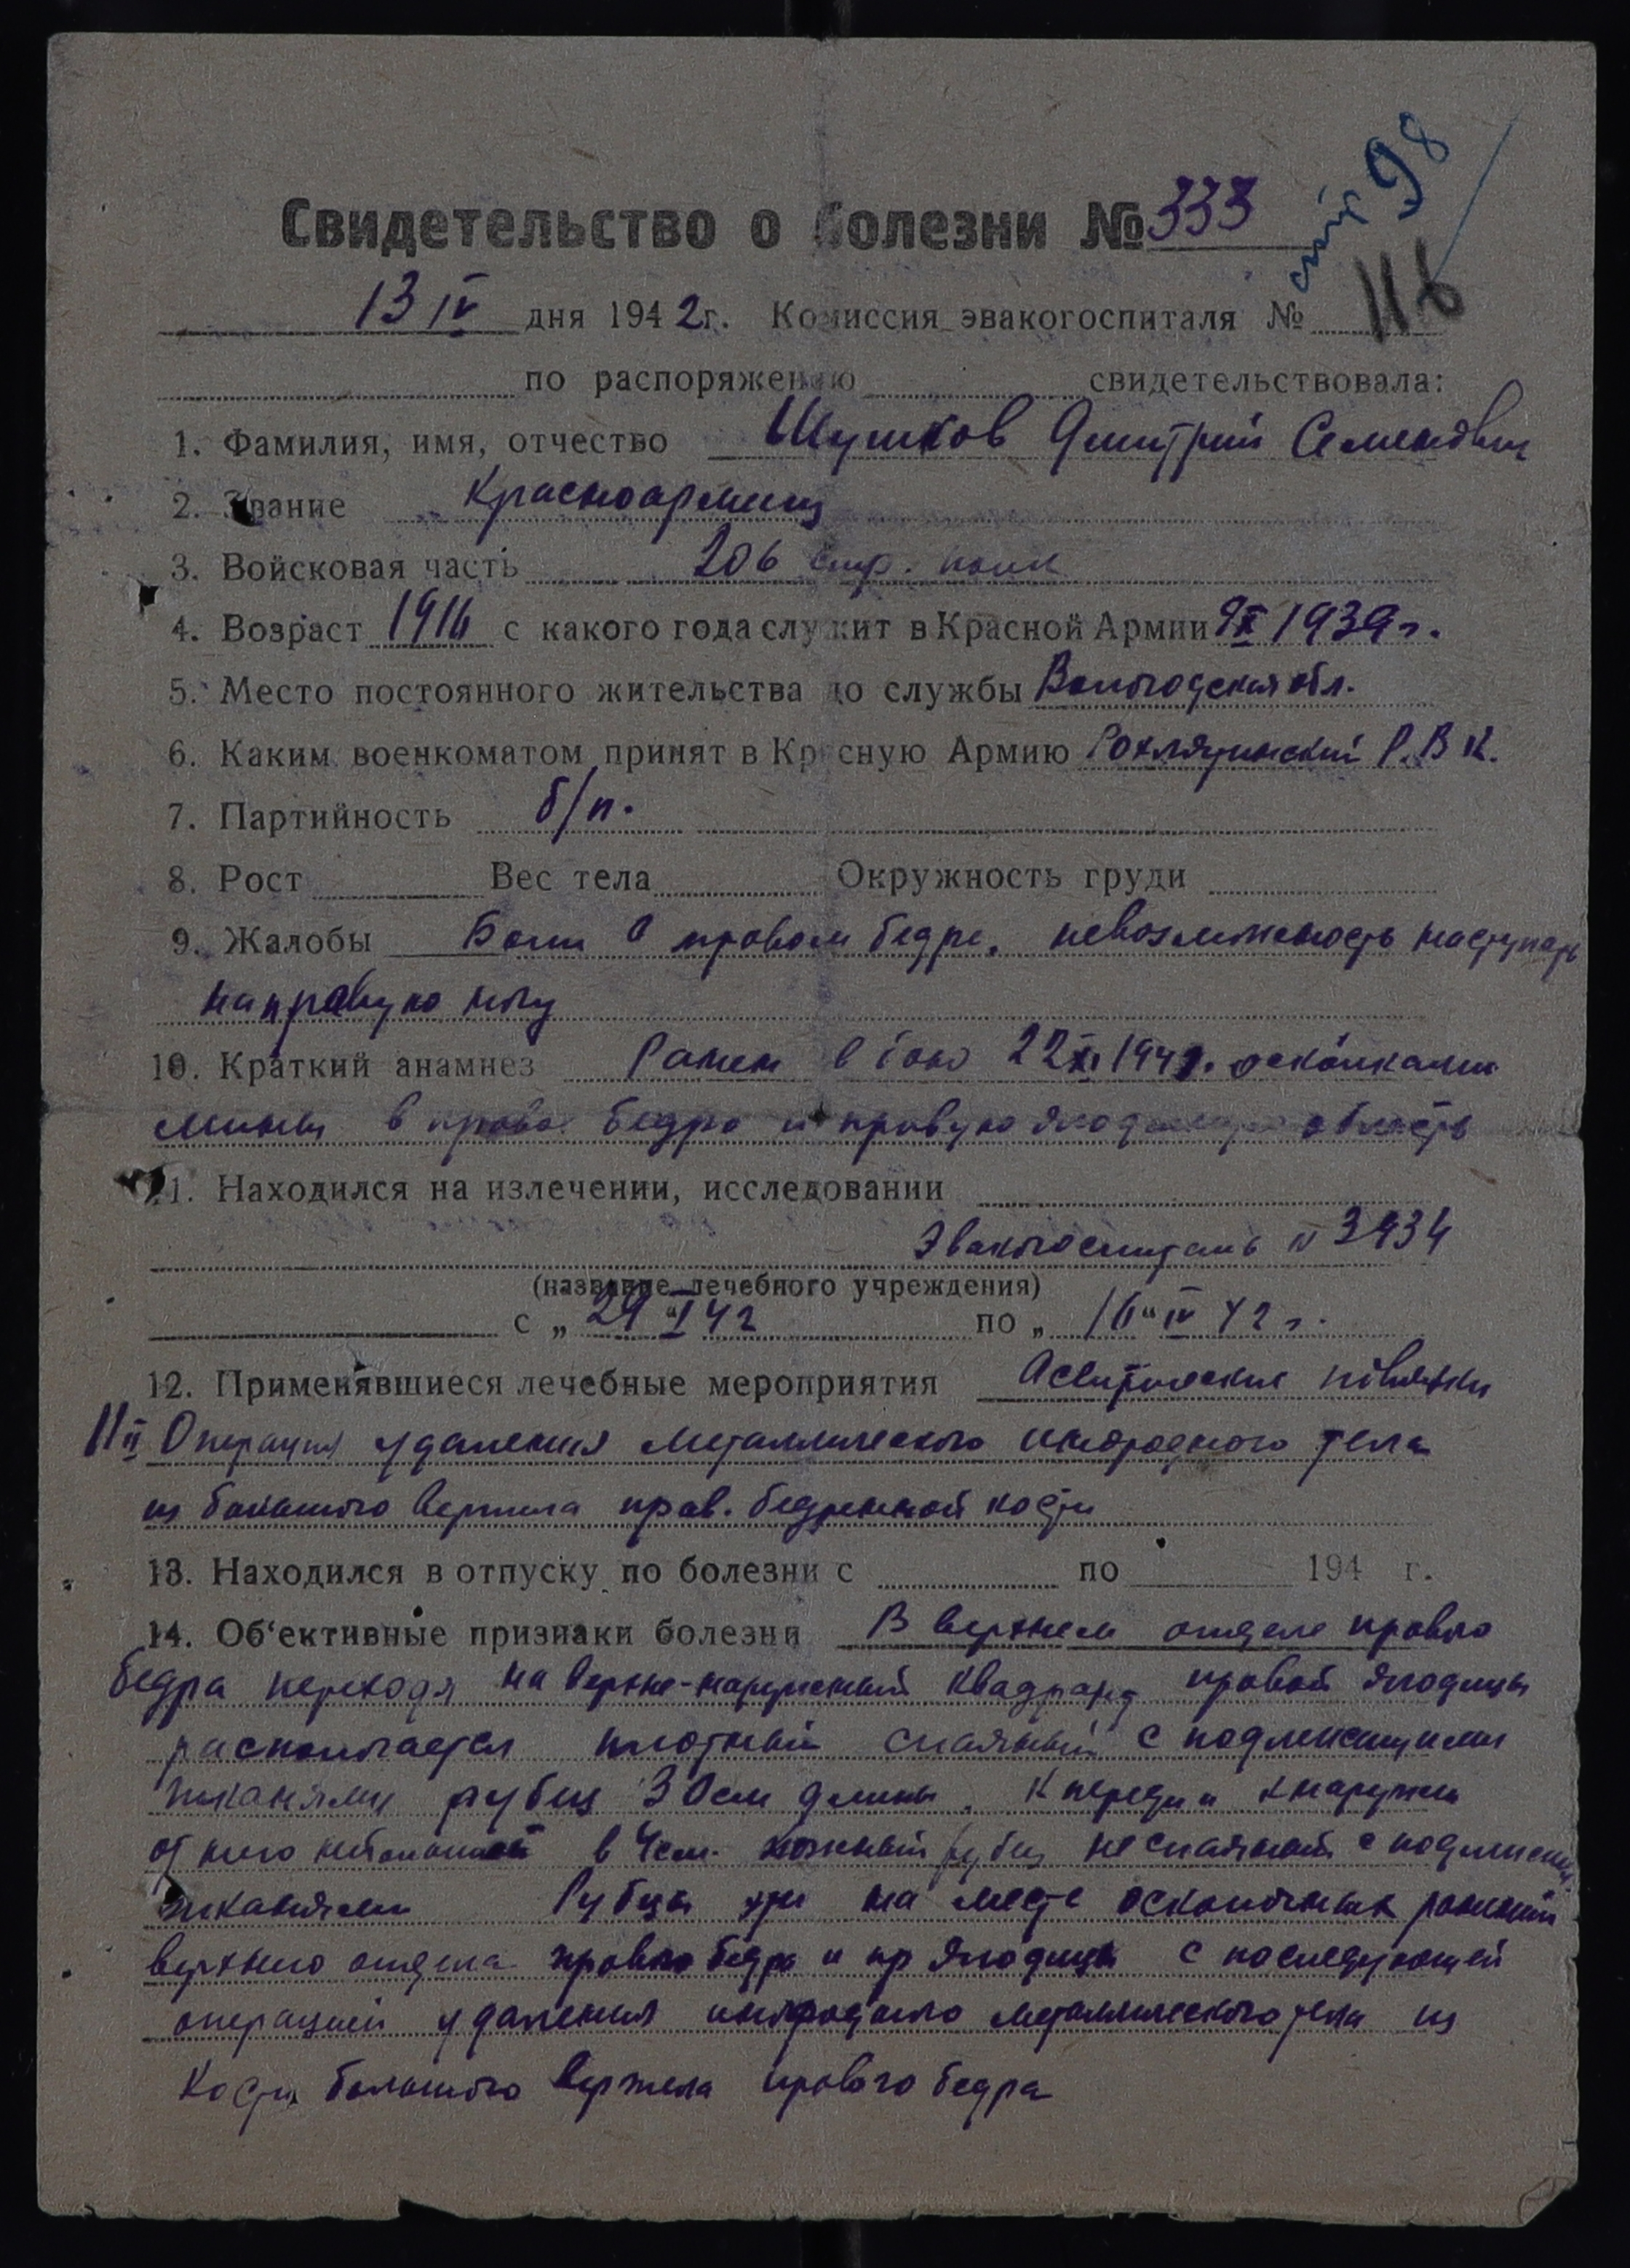 98
Свидетельство о болезни № 333
116
13 IV дня 1942г. Комиссия эвакогоспиталя №
по распоряжению свидетельствовала:
1. Фамилия, имя, отчество Шушков Дмитрий Семенович
2. Звание Красноармеец
3. Войсковая часть 206 стр. полк
4. Возраст 1916 с какого года служит в Красной Армии 1939 г.
5. Место постоянного жительства до службы Вологодская обл.
6. Каким военкоматом принят в Красную Армию Р.В.К.
7. Партийность б/п.
8. Рост Вес тела Окружность груди
9. Жалобы Боли в правом бедре, невозможность наступать
на правую ногу
10. Краткий анамнез Ранен в бою 22 XI 1941. осколками
мины в правое бедро и правую ягодичную область
11. Находился на излечении, исследовании
Эвакогоспиталь №
(название лечебного учреждения)
с „ 29 " I 42 по „ 16 " IV 42 г.
12. Применявшиеся лечебные мероприятия Асептические повязки
11 II Операция удаления металлического инородного тела
из большого вертела прав. бедренной кости
13. Находился в отпуску по болезни с по 194 г.
14. Об'ективные признаки болезни В верхнем отделе правого
бедра переходя на верхне-наружный квадрант правой ягодицы
располагается плотный спаяный с подлежащими
тканями рубец 30 см длины. Кпереди и кнаружи
от него небольшой в 4 см. кожный рубец не спаяный с подлежащ.
тканями Рубцы эти на месте осколочных ранений
верхнего отдела правого бедра и пр ягодицы с последующей
операцией удаления инородного металлического тела из
кости большого вертела правого бедра